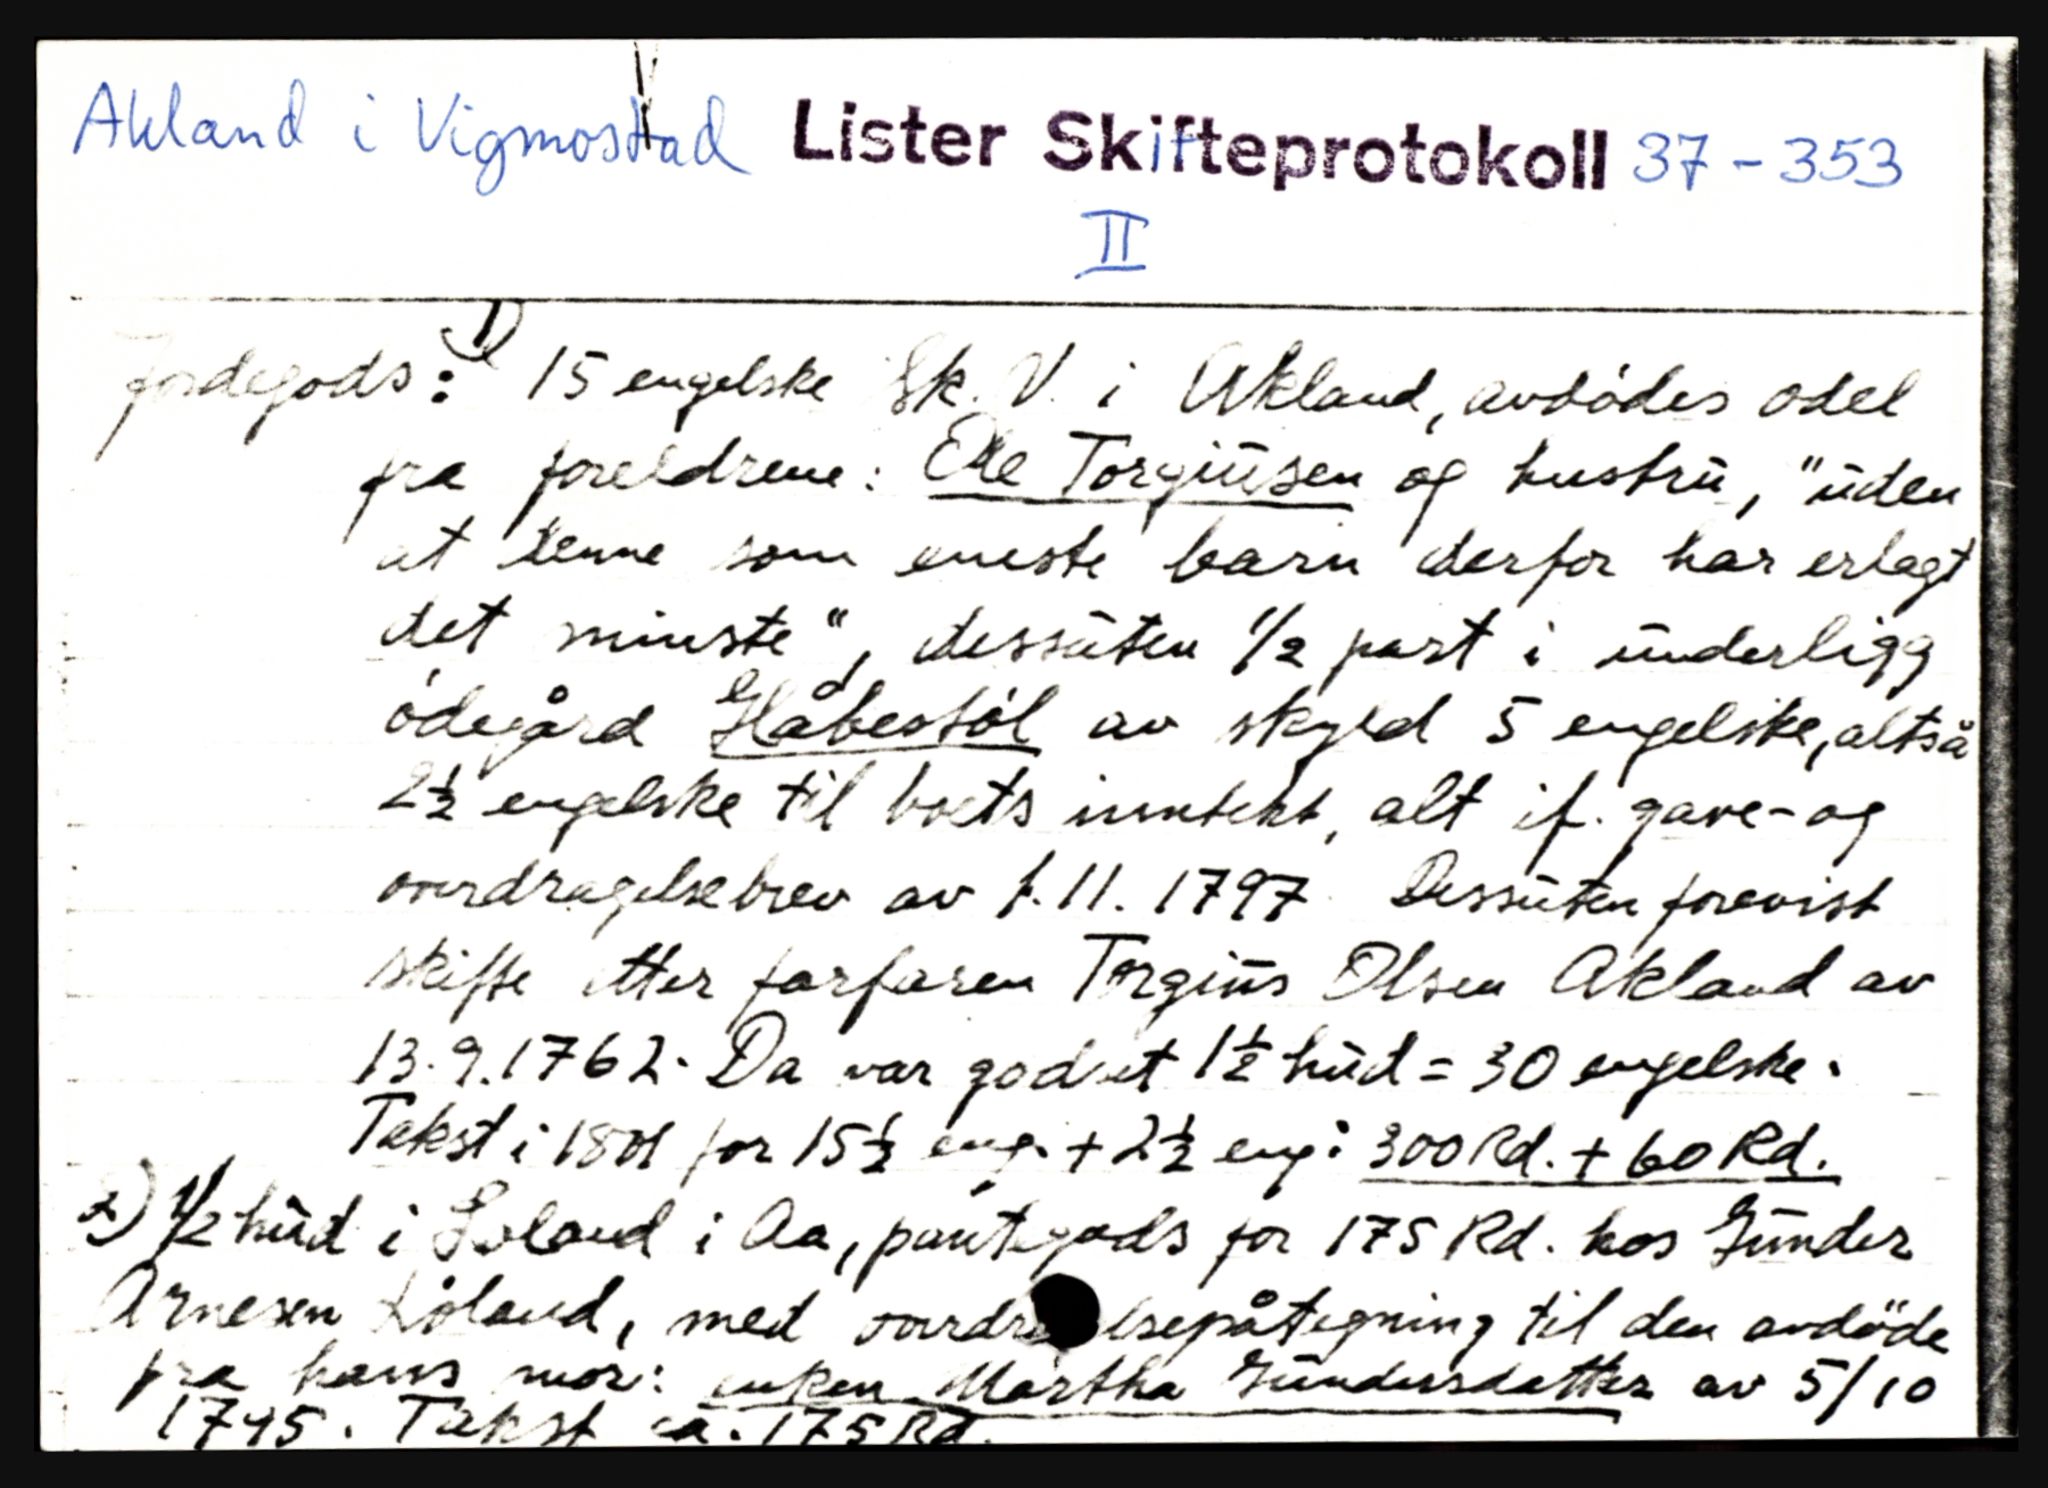 Akland i Vigmostad Lister Skifteprotokoll 37-353
II
Jordegods: 1) 15 engelske Sk. V. i Akland, avdødes odel
fra foreldrene: Ole Torgiusen og hustru, "uden
at denne som eneste barn derfor har erlagt
det minste", dessuten 1/2 part i underligg
ødegård av skyld 5 engelske, altså
2½ engelske til boets inntekt, alt if. gave- og
overdragelsebrev av 1.11.1797 Dessuten forevist
skifte etter farfaren Torgius Olsen Akland av
13.9.1762. Da var godset 1½ hud = 30 engelske.
Takst i 1801 for 15½ eng. + 2½ eng: 300 Rd. + 60 Rd.
2) 1/2 hud i Loland i Aa, pantegods for 175 Rd. hos Gunder
Arnesen Låland, med overdragelsepåtegning til den avdöde
fra hans mor: enken Martha Gundersdatter av 5/10
Takst a. 175 Rd.